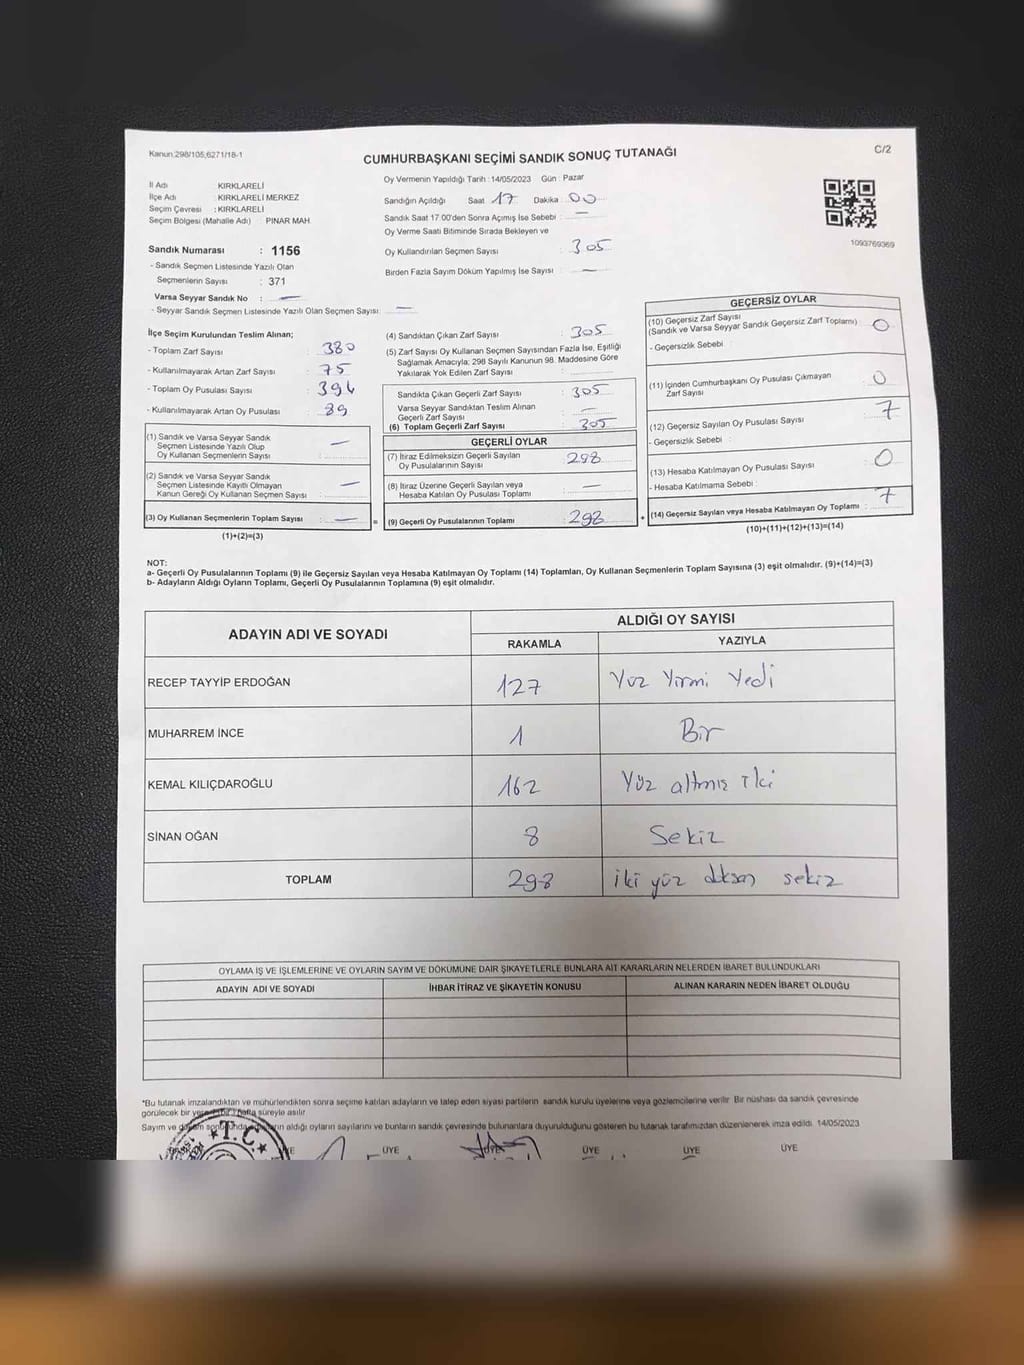 Kanun:298/105,6271/18-1
CUMHURBAŞKANI SEÇİMİ SANDIK SONUÇ TUTANAĞI
C/2
Oy Vermenin Yapıldığı Tarih :14/05/2023 Gün : Pazar
İl Adı KIRKLARELİ
İlçe Adı : KIRKLARELİ MERKEZ
Seçim Çevresi : KIRKLARELİ
Seçim Bölgesi (Mahalle Adı) : PINAR MAH.
Sandık Numarası : 1156
- Sandık Seçmen Listesinde Yazılı Olan
Seçmenlerin Sayısı : 371
Varsa Seyyar Sandık No : —
- Seyyar Sandık Seçmen Listesinde Yazılı Olan Seçmen Sayısı: —
Sandığın Açıldığı Saat 17 Dakika 00
Sandık Saat 17:00'den Sonra Açımış İse Sebebi : —
Oy Verme Saati Bitiminde Sırada Bekleyen ve
Oy Kullandırılan Seçmen Sayısı : 305
Birden Fazla Sayım Döküm Yapılmış İse Sayısı : —
1093769369
İlçe Seçim Kurulundan Teslim Alınan;
- Toplam Zarf Sayısı : 380
- Kullanılmayarak Artan Zarf Sayısı : 75
- Toplam Oy Pusulası Sayısı : 394
- Kullanılmayarak Artan Oy Pusulası : 89
(1) Sandık ve Varsa Seyyar Sandık
Seçmen Listesinde Yazılı Olup
Oy Kullanan Seçmenlerin Sayısı : —
(2) Sandık ve Varsa Seyyar Sandık
Seçmen Listesinde Kayıtlı Olmayan
Kanun Gereği Oy Kullanan Seçmen Sayısı : —
(3) Oy Kullanan Seçmenlerin Toplam Sayısı : —
(1)+(2)=(3)
=
(4) Sandıktan Çıkan Zarf Sayısı : 305
(5) Zarf Sayısı Oy Kullanan Seçmen Sayısından Fazla İse, Eşitliği
Sağlamak Amacıyla; 298 Sayılı Kanunun 98. Maddesine Göre
Yakılarak Yok Edilen Zarf Sayısı :
Sandıkta Çıkan Geçerli Zarf Sayısı : 305
Varsa Seyyar Sandıktan Teslim Alınan
Geçerli Zarf Sayısı : —
(6) Toplam Geçerli Zarf Sayısı : 305
GEÇERLİ OYLAR
(7) İtiraz Edilmeksizin Geçerli Sayılan
Oy Pusulalarının Sayısı : 298
(8) İtiraz Üzerine Geçerli Sayılan veya
Hesaba Katılan Oy Pusulası Toplamı : —
(9) Geçerli Oy Pusulalarının Toplamı : 298
+
GEÇERSİZ OYLAR
(10) Geçersiz Zarf Sayısı
(Sandık ve Varsa Seyyar Sandık Geçersiz Zarf Toplamı) : 0
- Geçersizlik Sebebi :
(11) İçinden Cumhurbaşkanı Oy Pusulası Çıkmayan
Zarf Sayısı : 0
(12) Geçersiz Sayılan Oy Pusulası Sayısı : 7
- Geçersizlik Sebebi :
(13) Hesaba Katılmayan Oy Pusulası Sayısı : 0
- Hesaba Katılmama Sebebi :
(14) Geçersiz Sayılan veya Hesaba Katılmayan Oy Toplamı : 7
(10)+(11)+(12)+(13)=(14)
NOT:
a- Geçerli Oy Pusulalarının Toplamı (9) ile Geçersiz Sayılan veya Hesaba Katılmayan Oy Toplamı (14) Toplamları, Oy Kullanan Seçmenlerin Toplam Sayısına (3) eşit olmalıdır. (9)+(14)=(3)
b- Adayların Aldığı Oyların Toplamı, Geçerli Oy Pusulalarının Toplamına (9) eşit olmalıdır.
ADAYIN ADI VE SOYADI
ALDIĞI OY SAYISI
RAKAMLA YAZIYLA
RECEP TAYYİP ERDOĞAN 127 Yüz Yirmi Yedi
MUHARREM İNCE 1 Bir
KEMAL KILIÇDAROĞLU 162 Yüz altmış iki
SİNAN OĞAN 8 Sekiz
TOPLAM 298 iki yüz doksan sekiz
OYLAMA İŞ VE İŞLEMLERİNE VE OYLARIN SAYIM VE DÖKÜMÜNE DAİR ŞİKAYETLERLE BUNLARA AİT KARARLARIN NELERDEN İBARET BULUNDUKLARI
ADAYIN ADI VE SOYADI İHBAR İTİRAZ VE ŞİKAYETİN KONUSU ALINAN KARARIN NEDEN İBARET OLDUĞU
*Bu tutanak imzalandıktan ve mühürlendikten sonra seçime katılan adayların ve talep eden siyasi partilerin sandık kurulu üyelerine veya gözlemcilerine verilir. Bir nüshası da sandık çevresinde
görülecek bir yere bir hafta süreyle asılır.
Sayım ve döküm sonunda aldığı oyların sayılarını ve bunların sandık çevresinde bulunanlara duyurulduğunu gösteren bu tutanak tarafımızdan düzenlenerek imza edildi. 14/05/2023
T.C.
ÜYE ÜYE ÜYE ÜYE ÜYE